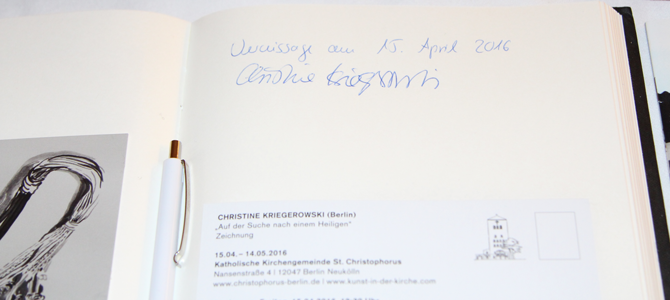 Vernissage am 15. April 2016
Christine Kriegerowski
CHRISTINE KRIEGEROWSKI (Berlin)
„Auf der Suche nach einem Heiligen"
Zeichnung
15.04. – 14.05.2016
Katholische Kirchengemeinde St. Christophorus
Nansenstraße 4 I 12047 Berlin Neukölln
www.christophorus-berlin.de I www.kunst-in-der-kirche.com